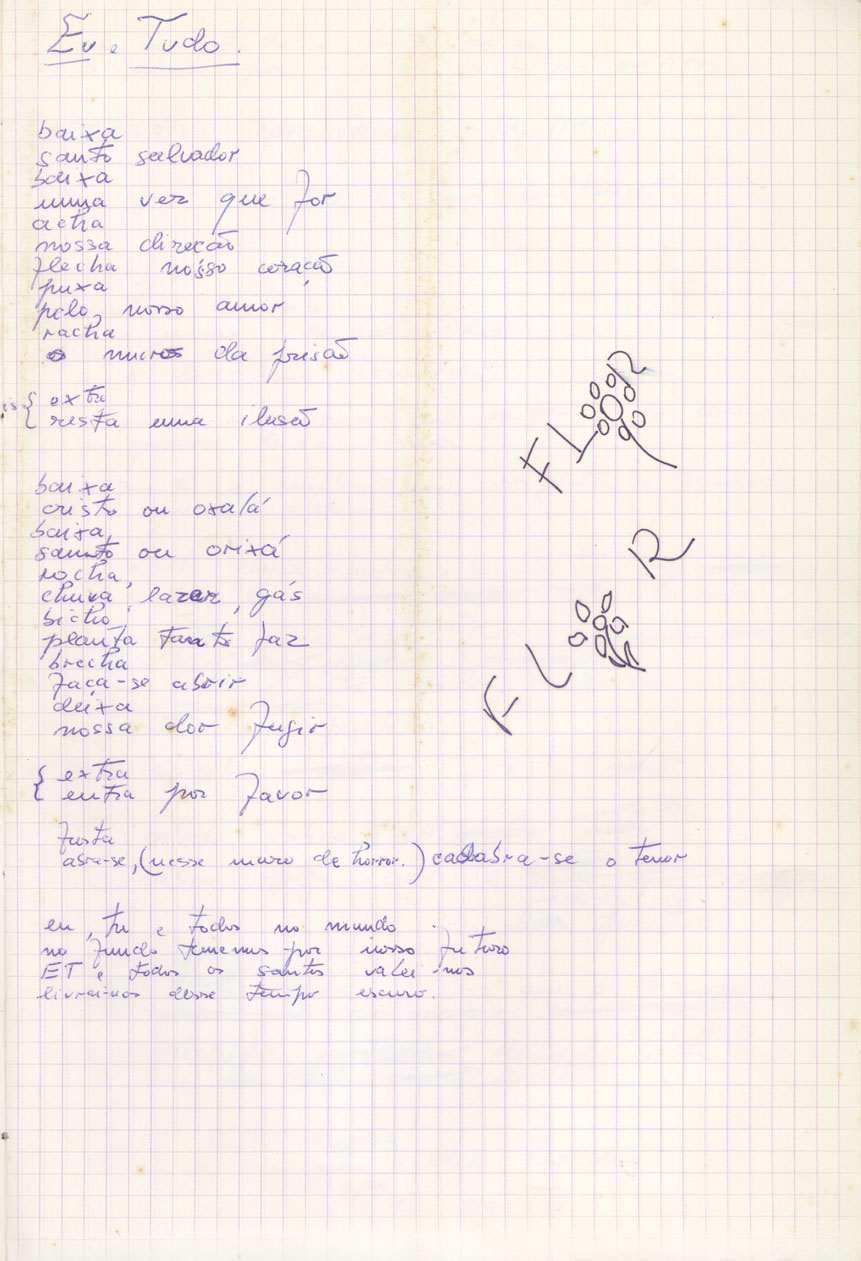 Eu e Tudo.
baixa
santo salvador
baixa
numa vez que for
acha
nossa direção
flecha nosso coração
puxa
pelo nosso amor
racha
os muros da prisão
extra
resta uma ilusão
baixa
cristo ou oxalá
baixa,
santo ou orixá
rocha,
chuva, lazer, gás
bicho,
planta tanto faz
brecha
faça-se abrir
deixa
nossa dor fugir
extra
entra por favor
abra-se, (nesse muro de horror.) cadabra-se o temor
eu, tu e todos no mundo
no fundo tememos por nosso futuro
ET e todos os santos valei-nos
livrai-nos desse tempo escuro.
FLOR
FLOR